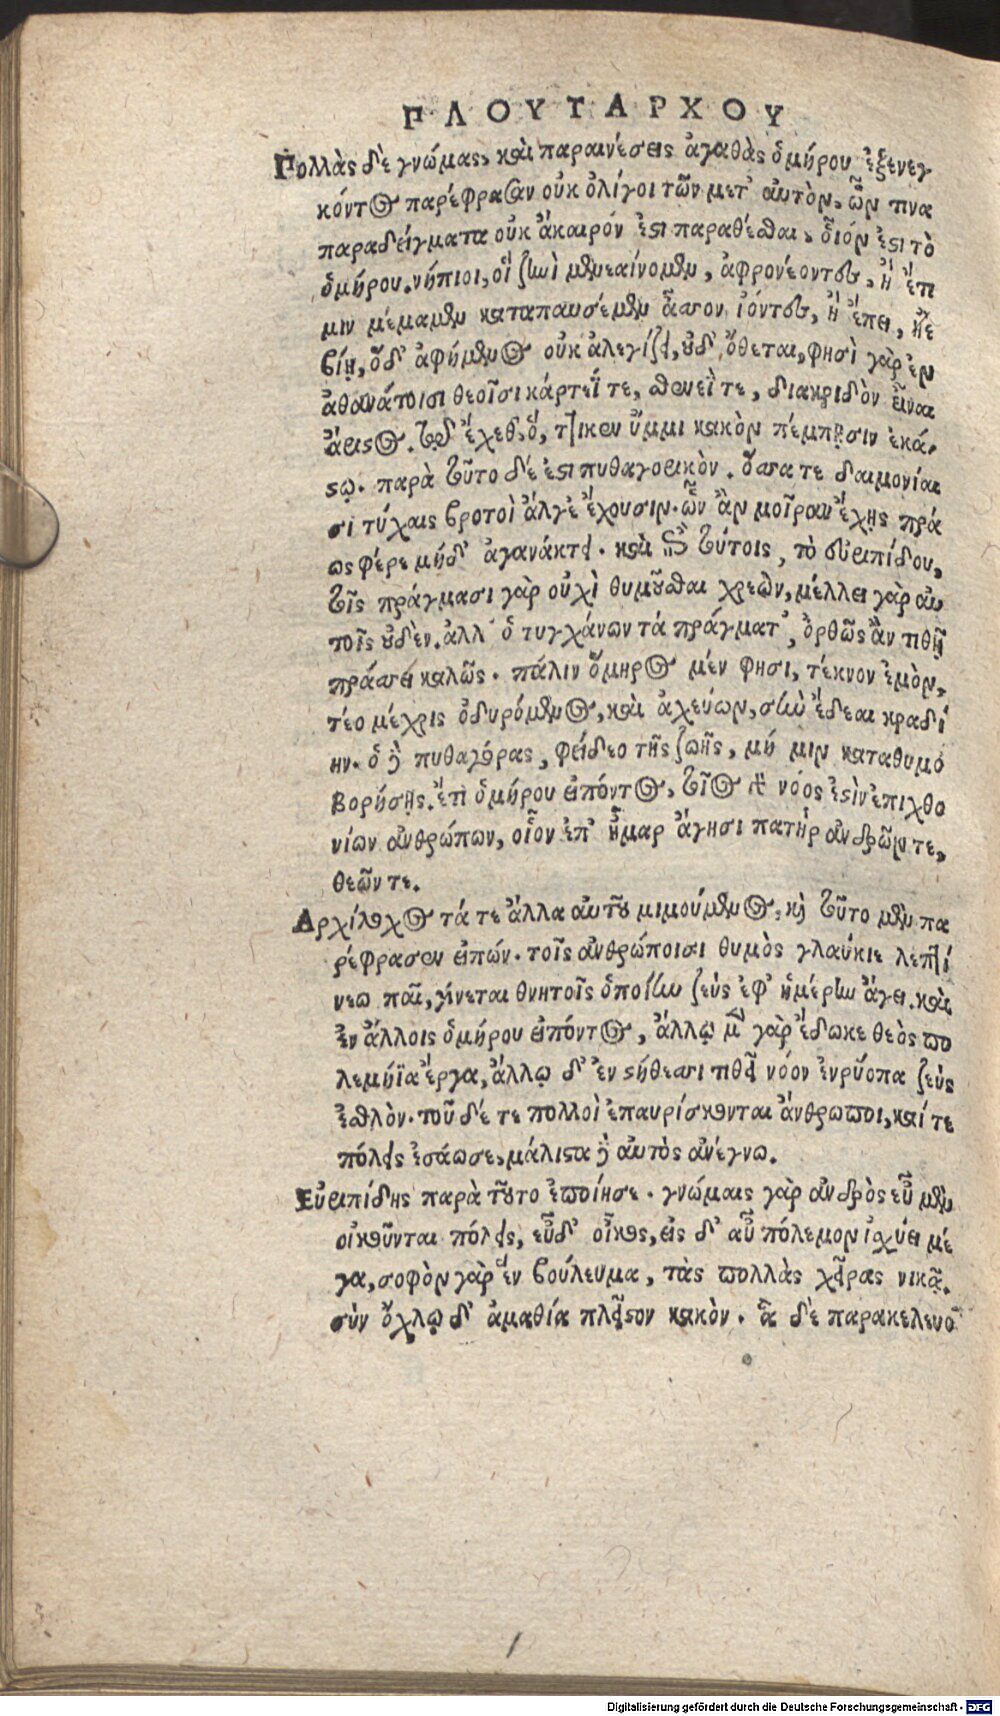 ΠΛΟΥΤΑΡΧΟΥ
Πολλὰς δὲ γνώμας, καὶ παραινέσεις ἀγαθὰς ὁμήρου ἐξενεγ
κόντος παρέφρασαν οὐκ ὀλίγοι τῶν μετ' αὐτὸν, ὧν τινα
παραδείγματα οὐκ ἄκαιρόν ἐστι παραθέσθαι, οἷόν ἐστι τὸ
ὁμήρου. νήπιοι, οἳ ζηνὶ μενεαίνομεν, ἀφρονέοντες, ἢ ἔτι
μιν μέμαμεν καταπαυσέμεν ἆσσον ἰόντες, ἢ ἔπει, ἠὲ
βίῃ, ὅδ' ἀφήμενος οὐκ ἀλεγίζει, οὐδ' ὄθεται, φησὶ γὰρ ἐν
ἀθανάτοισι θεοῖσι κάρτεΐ τε, σθένεΐ τε, διακριδὸν εἶναι
ἄριστος. τῷ δ' ἔχεθ', ὅ, ττικεν ὔμμι κακὸν πέμπῃσιν ἑκά,
στῳ. παρὰ τοῦτο δέ ἐστι πυθαγορικὸν. ὅσσα τε δαιμονίαι
σι τύχαις βροτοὶ ἄλγε' ἔχουσιν. ὧν ἂν μοῖραν ἔχῃς πρά
ως φέρε μηδ' ἀγανάκτει. καὶ τούτοις, τὸ εὐριπίδου,
τοῖς πράγμασι γὰρ οὐχὶ θυμοῦσθαι χρεὼν, μέλλει γὰρ αὐ
τοῖς οὐδὲν. ἀλλ' ὁ τυγχάνων τὰ πράγματ', ὀρθῶς ἂν τιθῇ
πράσσει καλῶς. πάλιν ὅμηρος μέν φησι, τέκνον ἐμὸν,
τέο μέχρις ὀδυρόμενος, καὶ ἀχεύων, σὴν ἔδεαι κραδί
ην. ὁ δὲ πυθαγόρας, φείδεο τῆς ζωῆς, μή μιν καταθυμο
βορήσῃς. ἔτι ὁμήρου εἰπόντος, τοῖος γὰρ νόος ἐστὶν ἐπιχθο
νίων ἀνθρώπων, οἷον ἐπ' ἦμαρ ἄγῃσι πατὴρ ἀνδρῶν τε,
θεῶν τε.
Αρχίλοχος τά τε ἄλλα αὐτοῦ μιμούμενος, καὶ τοῦτο μὲν πα
ρέφρασεν εἰπών. τοῖς ἀνθρώποισι θυμὸς γλαύκιε λεπτί
νεω παῖ, γίνεται θνητοῖς ὁποίην ζεὺς ἐφ' ἡμέρην ἄγει. καὶ
ἐν ἄλλοις ὁμήρου εἰπόντος, ἄλλῳ μὲν γὰρ ἔδωκε θεὸς πο
λεμήϊα ἔργα, ἄλλῳ δ' ἐν στήθεσσι τιθεῖ νόον ἐνρύοπα ζεὺς
ἐσθλὸν. τοῦ δέ τε πολλοὶ ἐπαυρίσκονται ἄνθρωποι, καί τε
πόλεις ἐσάωσε, μάλιστα δὲ αὐτὸς ἀνέγνω.
Εὐριπίδης παρὰ τοῦτο ἐποίησε. γνώμαις γὰρ ἀνδρὸς εὖ μὲν
οἰκοῦνται πόλεις, εὖ δ' οἶκος, εἰς δ' αὖ πόλεμον ἰσχύει μέ
γα, σοφὸν γὰρ ἓν βούλευμα, τὰς πολλὰς χεῖρας νικᾷ.
σὺν ὄχλῳ δ' ἀμαθία πλεῖστον κακὸν. ἃ δὲ παρακελευο
Digitalisierung gefördert durch die Deutsche Forschungsgemeinschaft - DFG